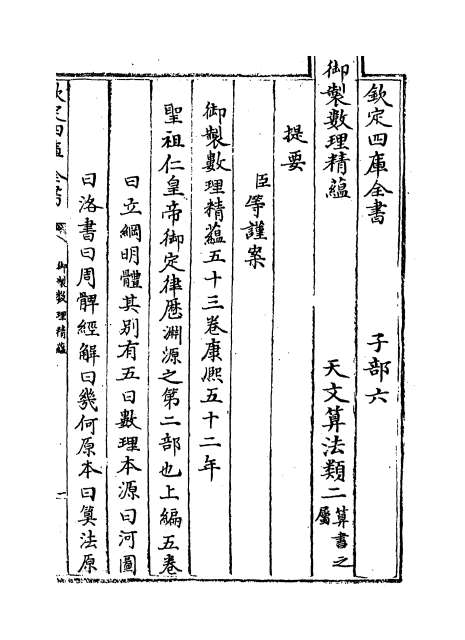 欽定四庫全書　子部六
御製數理精蘊　天文算法類二算書之屬
提要
臣等謹案
御製數理精蘊五十三卷康熈五十二年
聖祖仁皇帝御定律歴淵源之第二部也上編五卷
曰立綱明體其别有五曰數理本源曰河圖
曰洛書曰周髀經解曰幾何原本曰算法原
欽定四庫全書
御製數理精蘊
一